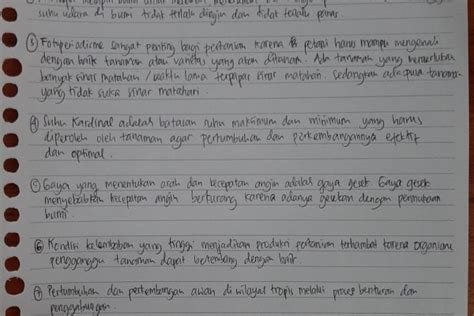 suhu udara di bumi tidak terlalu dingin dan tidak terlalu panas
③ Fotoperiodisme sangat penting bagi pertanian karena petani harus mampu mengenali
dengan baik tanaman atau varietas yang akan ditanam. Ada tanaman yang membutuhkan
banyak sinar matahari / waktu lama terpapar sinar matahari. sedangkan ada pula tanaman
yang tidak suka sinar matahari.
④ Suhu Kardinal adalah batasan suhu maksimum dan minimum yang harus
diperoleh oleh tanaman agar pertumbuhan dan perkembangannya efektif
dan optimal.
⑤ Gaya yang menentukan arah dan kecepatan angin adalah gaya gesek. Gaya gesek
menyebabkan kecepatan angin berkurang karena adanya gesekan dengan permukaan
bumi.
⑥ Kondisi kelembaban yang tinggi menjadikan produksi pertanian terhambat karena organisme
pengganggu tanaman dapat berkembang dengan baik.
⑦ Pertumbuhan dan perkembangan awan di wilayah tropis melalui proses benturan dan
penggabungan.